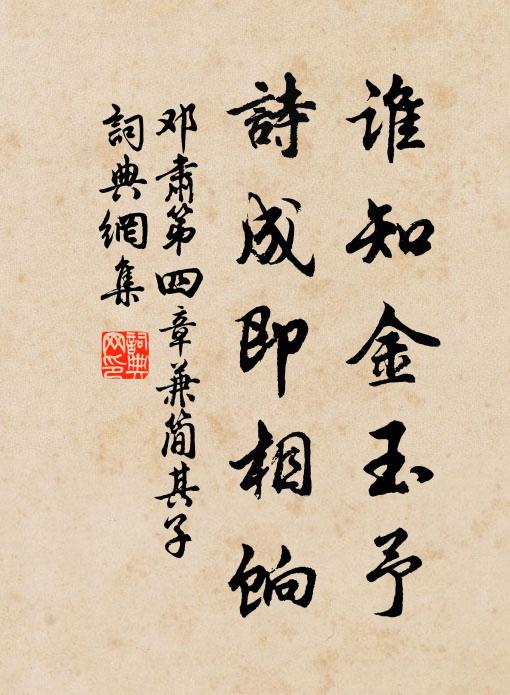 谁知金玉予
詩成即相餉
邓肃第四章兼简其子
詞典網集
詞典網印